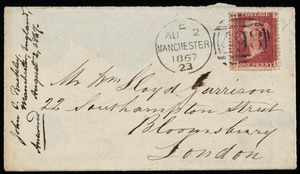 John C. Buckley,
Manchester, England,
August 2, 1867.
Answered
E
AU 2
MANCHESTER
1867
23
POSTAGE
498
ONE PENNY
Mr Wm Lloyd Garrison
22 Southampton Street
Bloomsbury
London